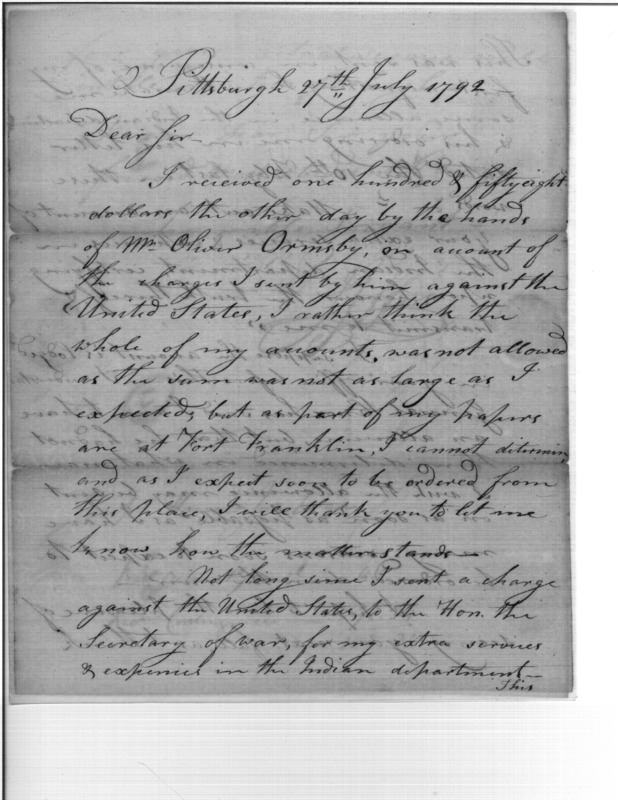 Pittsburgh 27th July 1792
Dear Sir
I received one hundred & fiftyeight
dollars the other day by the hands
of Mr Oliver Ormsby, on account of
the charges I sent by him against the
United States, I rather think the
whole of my accounts, was not allowed
as the sum was not as large as I
expected, but as part of my papers
are at Fort Franklin, I cannot ditermin,
and as I expect soon to be ordered from
this place, I will thank you to let me
know how the matter stands—
Not long since I sent a charge
against the United States, to the Hon. the
Secretary of war, for my extra services
& expences in the Indian department—
This